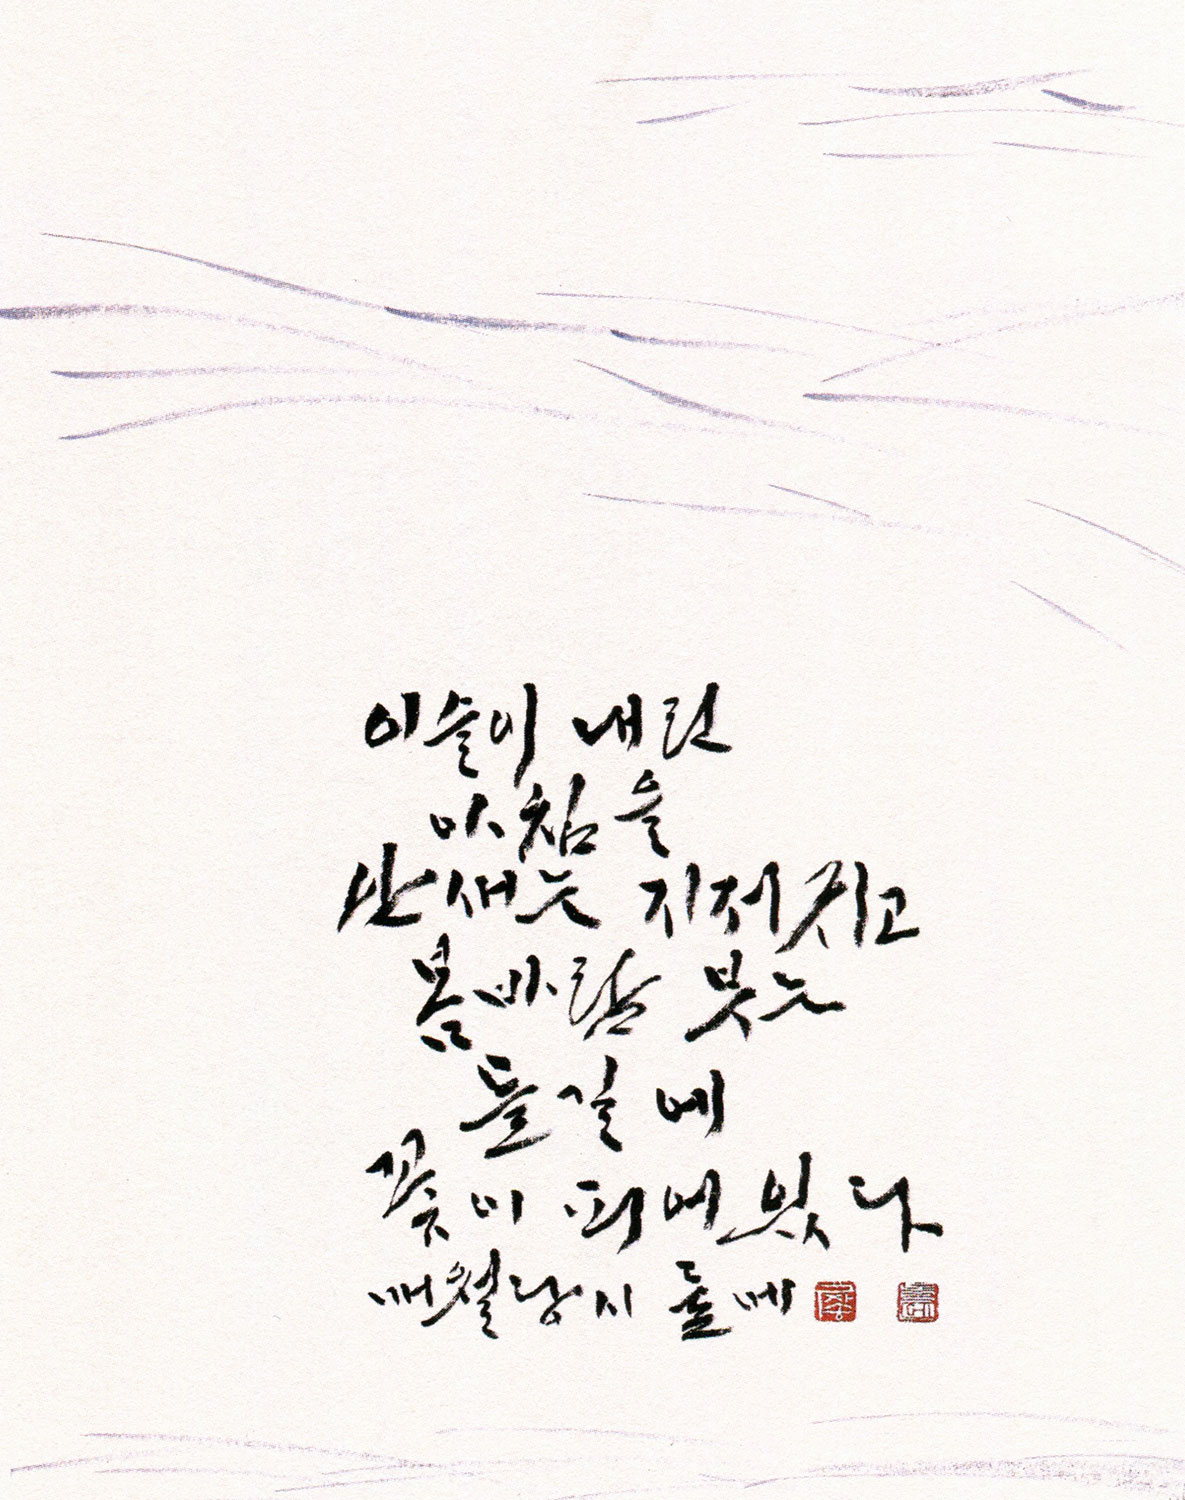 이슬이 내린
아침을
산새는 지저귀고
봄바람 부는
들길에
꽃이 피어있다
매월당 시 들에